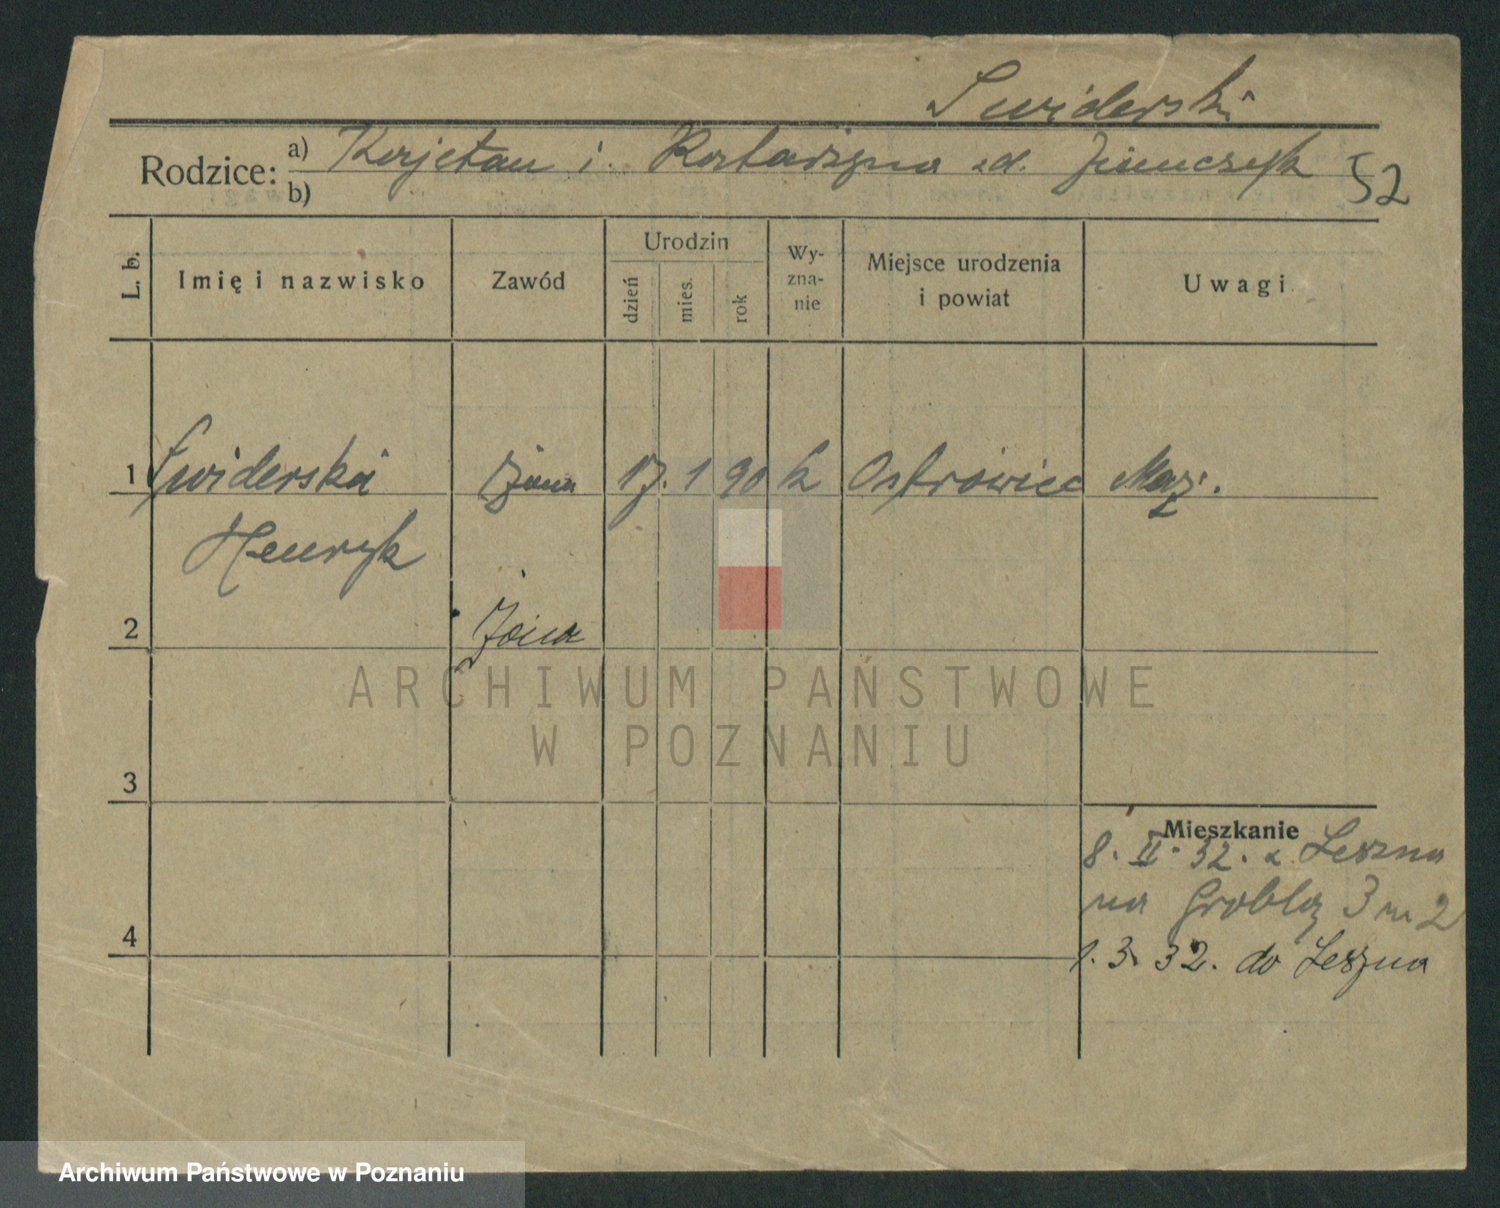 Swiderski
Rodzice: a) Kajetan i Katarzyna zd. Jemczyk 52
b)
L. b. Imię i nazwisko Zawód Urodzin dzień mies. rok Wy- zna- nie Miejsce urodzenia i powiat Uwagi
1 Swiderski żona 17. 1 90 k Ostrowiec Maz.
Henryk
2 żona
ARCHIWUM PAŃSTWOWE
W POZNANIU
3
Mieszkanie
8. II. 32. z Leszna
na Groblą 3 m 2
4
1. 3. 32. do Leszna
Archiwum Państwowe w Poznaniu